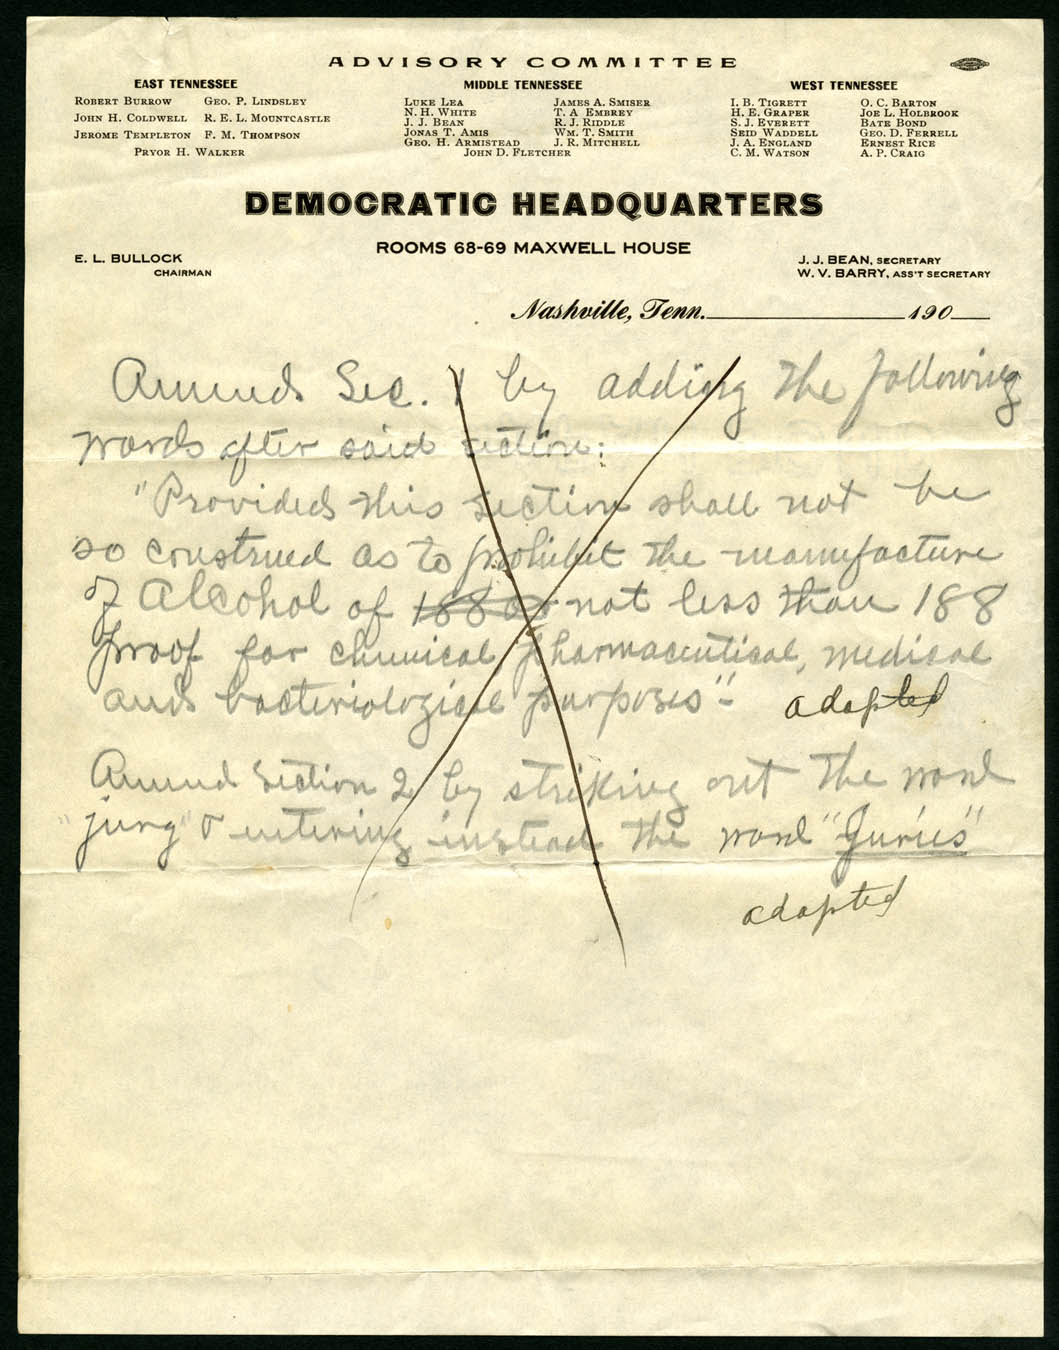 ADVISORY COMMITTEE
EAST TENNESSEE
ROBERT BURROW GEO. P. LINDSLEY
JOHN H. COLDWELL R. E. L. MOUNTCASTLE
JEROME TEMPLETON F. M. THOMPSON
PRYOR H. WALKER
MIDDLE TENNESSEE
LUKE LEA JAMES A. SMISER
N. H. WHITE T. A EMBREY
J. J. BEAN R. J. RIDDLE
JONAS T. AMIS WM. T. SMITH
GEO. H. ARMISTEAD J. R. MITCHELL
JOHN D. FLETCHER
WEST TENNESSEE
I. B. TIGRETT O. C. BARTON
H. E. GRAPER JOE L. HOLBROOK
S. J. EVERETT BATE BOND
SEID WADDELL GEO. D. FERRELL
J. A. ENGLAND ERNEST RICE
C. M. WATSON A. P. CRAIG
DEMOCRATIC HEADQUARTERS
ROOMS 68-69 MAXWELL HOUSE
E. L. BULLOCK
CHAIRMAN
J. J. BEAN, SECRETARY
W. V. BARRY, ASS'T SECRETARY
Nashville, Tenn. 190
Amend Sec. 1 by adding the following
words after said section:
"Provided this section shall not be
so construed as to prohibit the manufacture
of Alcohol of not less than 188
proof for chemical pharmaceutical, medical
and bacteriological purposes"- adopted
Amend Section 2 by striking out the word
"jury" & entering instead the word "Juries"
adopted